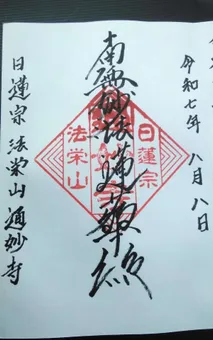 令和七年 八月 八日
南無妙法蓮華経
日蓮宗
法栄山
日蓮宗 法栄山 通妙寺